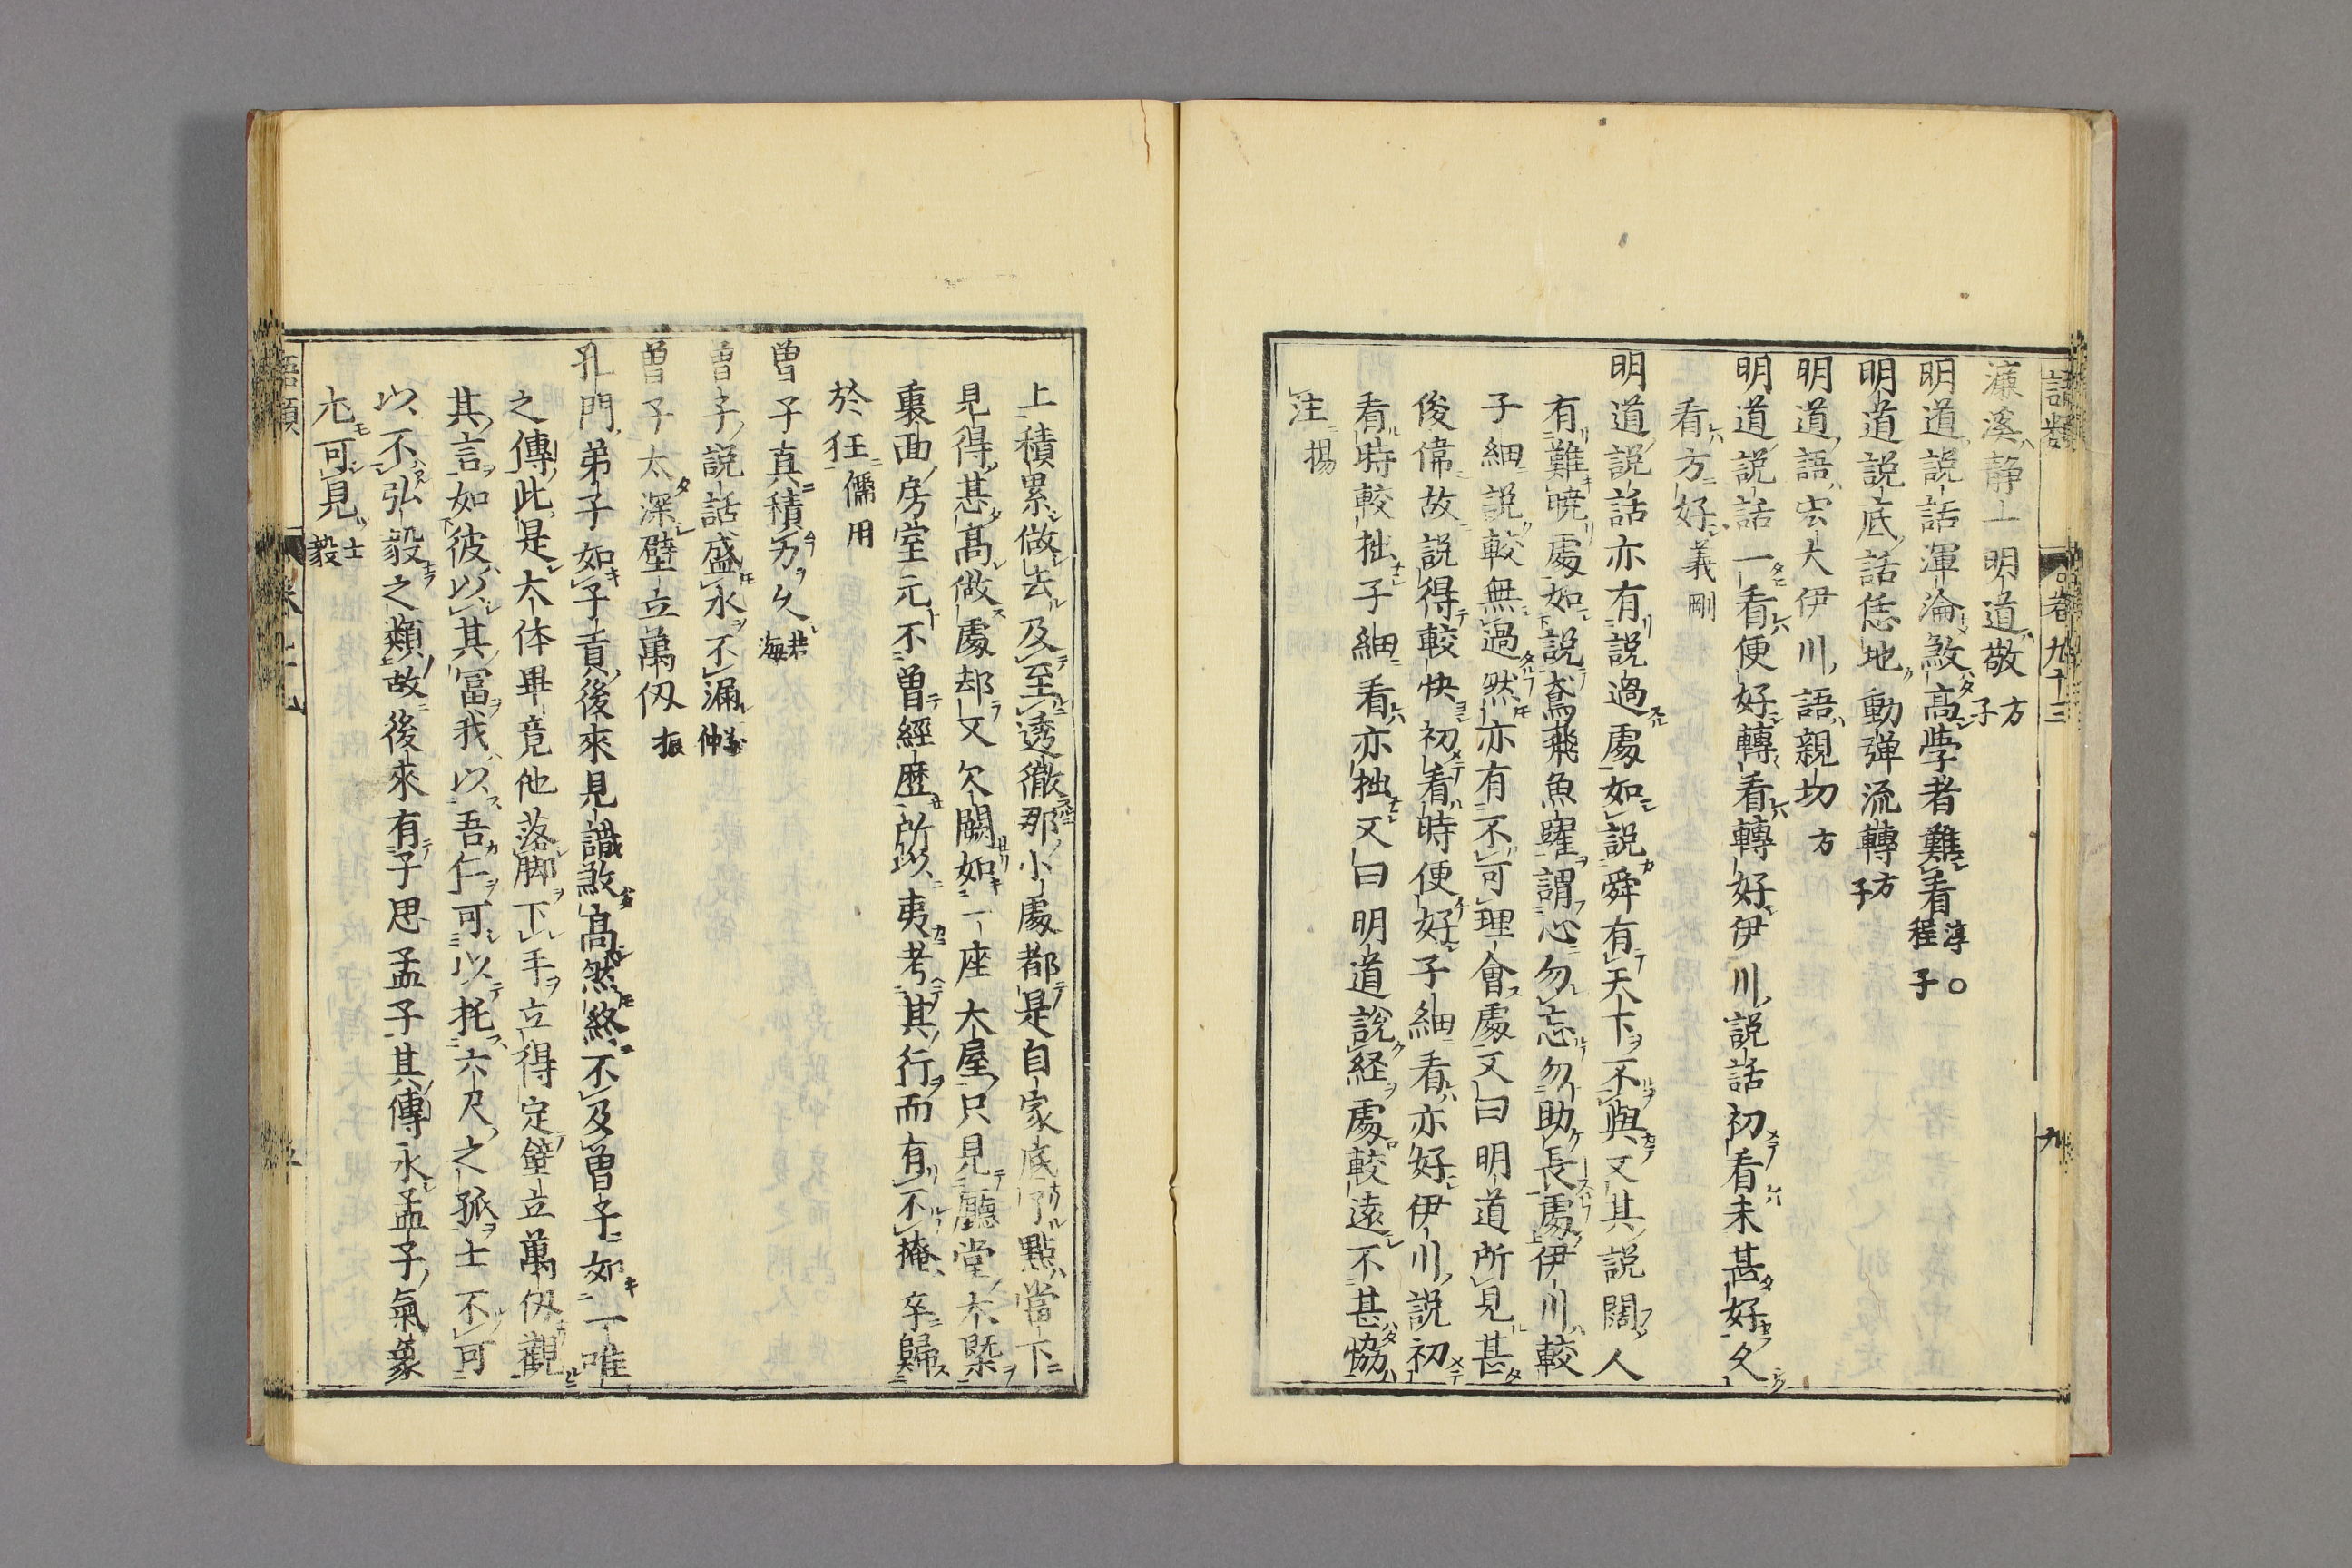 語類
卷九十三
九
濂溪静一明道敬方子
明道説話渾淪煞高學者難看淳○程子
明道説底話恁地動弾流轉方子
明道語宏大伊川語親切方
明道説話一看便好轉看轉好伊川説話初看未甚好久
看方好義剛
明道説話亦有説過處如説舜有天下不與又其説闊人
有難曉處如説鳶飛魚躍謂心勿忘勿助長處伊川較
子細説較無過然亦有不可理會處又曰明道所見甚
俊偉故説得較快初看時便好子細看亦好伊川説初
看時較拙子細看亦拙又曰明道説経處較遠不甚恊
注揚
上積累做去及至透徹那小處都是自家底了點當下
見得甚高做處却又欠闕如一座大屋只見廳堂大槩
裏面房室元不曾經歴所以夷考其行而有不掩卒歸
於狂僴用
曾子真積力久若海
曾子説話盛水不漏義仲
曾子太深壁立萬仭振
孔門弟子如子貢後來見識煞高然終不及曾子如一唯
之傳此是大体畢竟他落脚下手立得定壁立萬仭觀
其言如彼以其富我以吾仁可以托六尺之孤士不可
以不弘毅之類故後來有子思孟子其傳永孟子氣象
尤可見士毅
語類